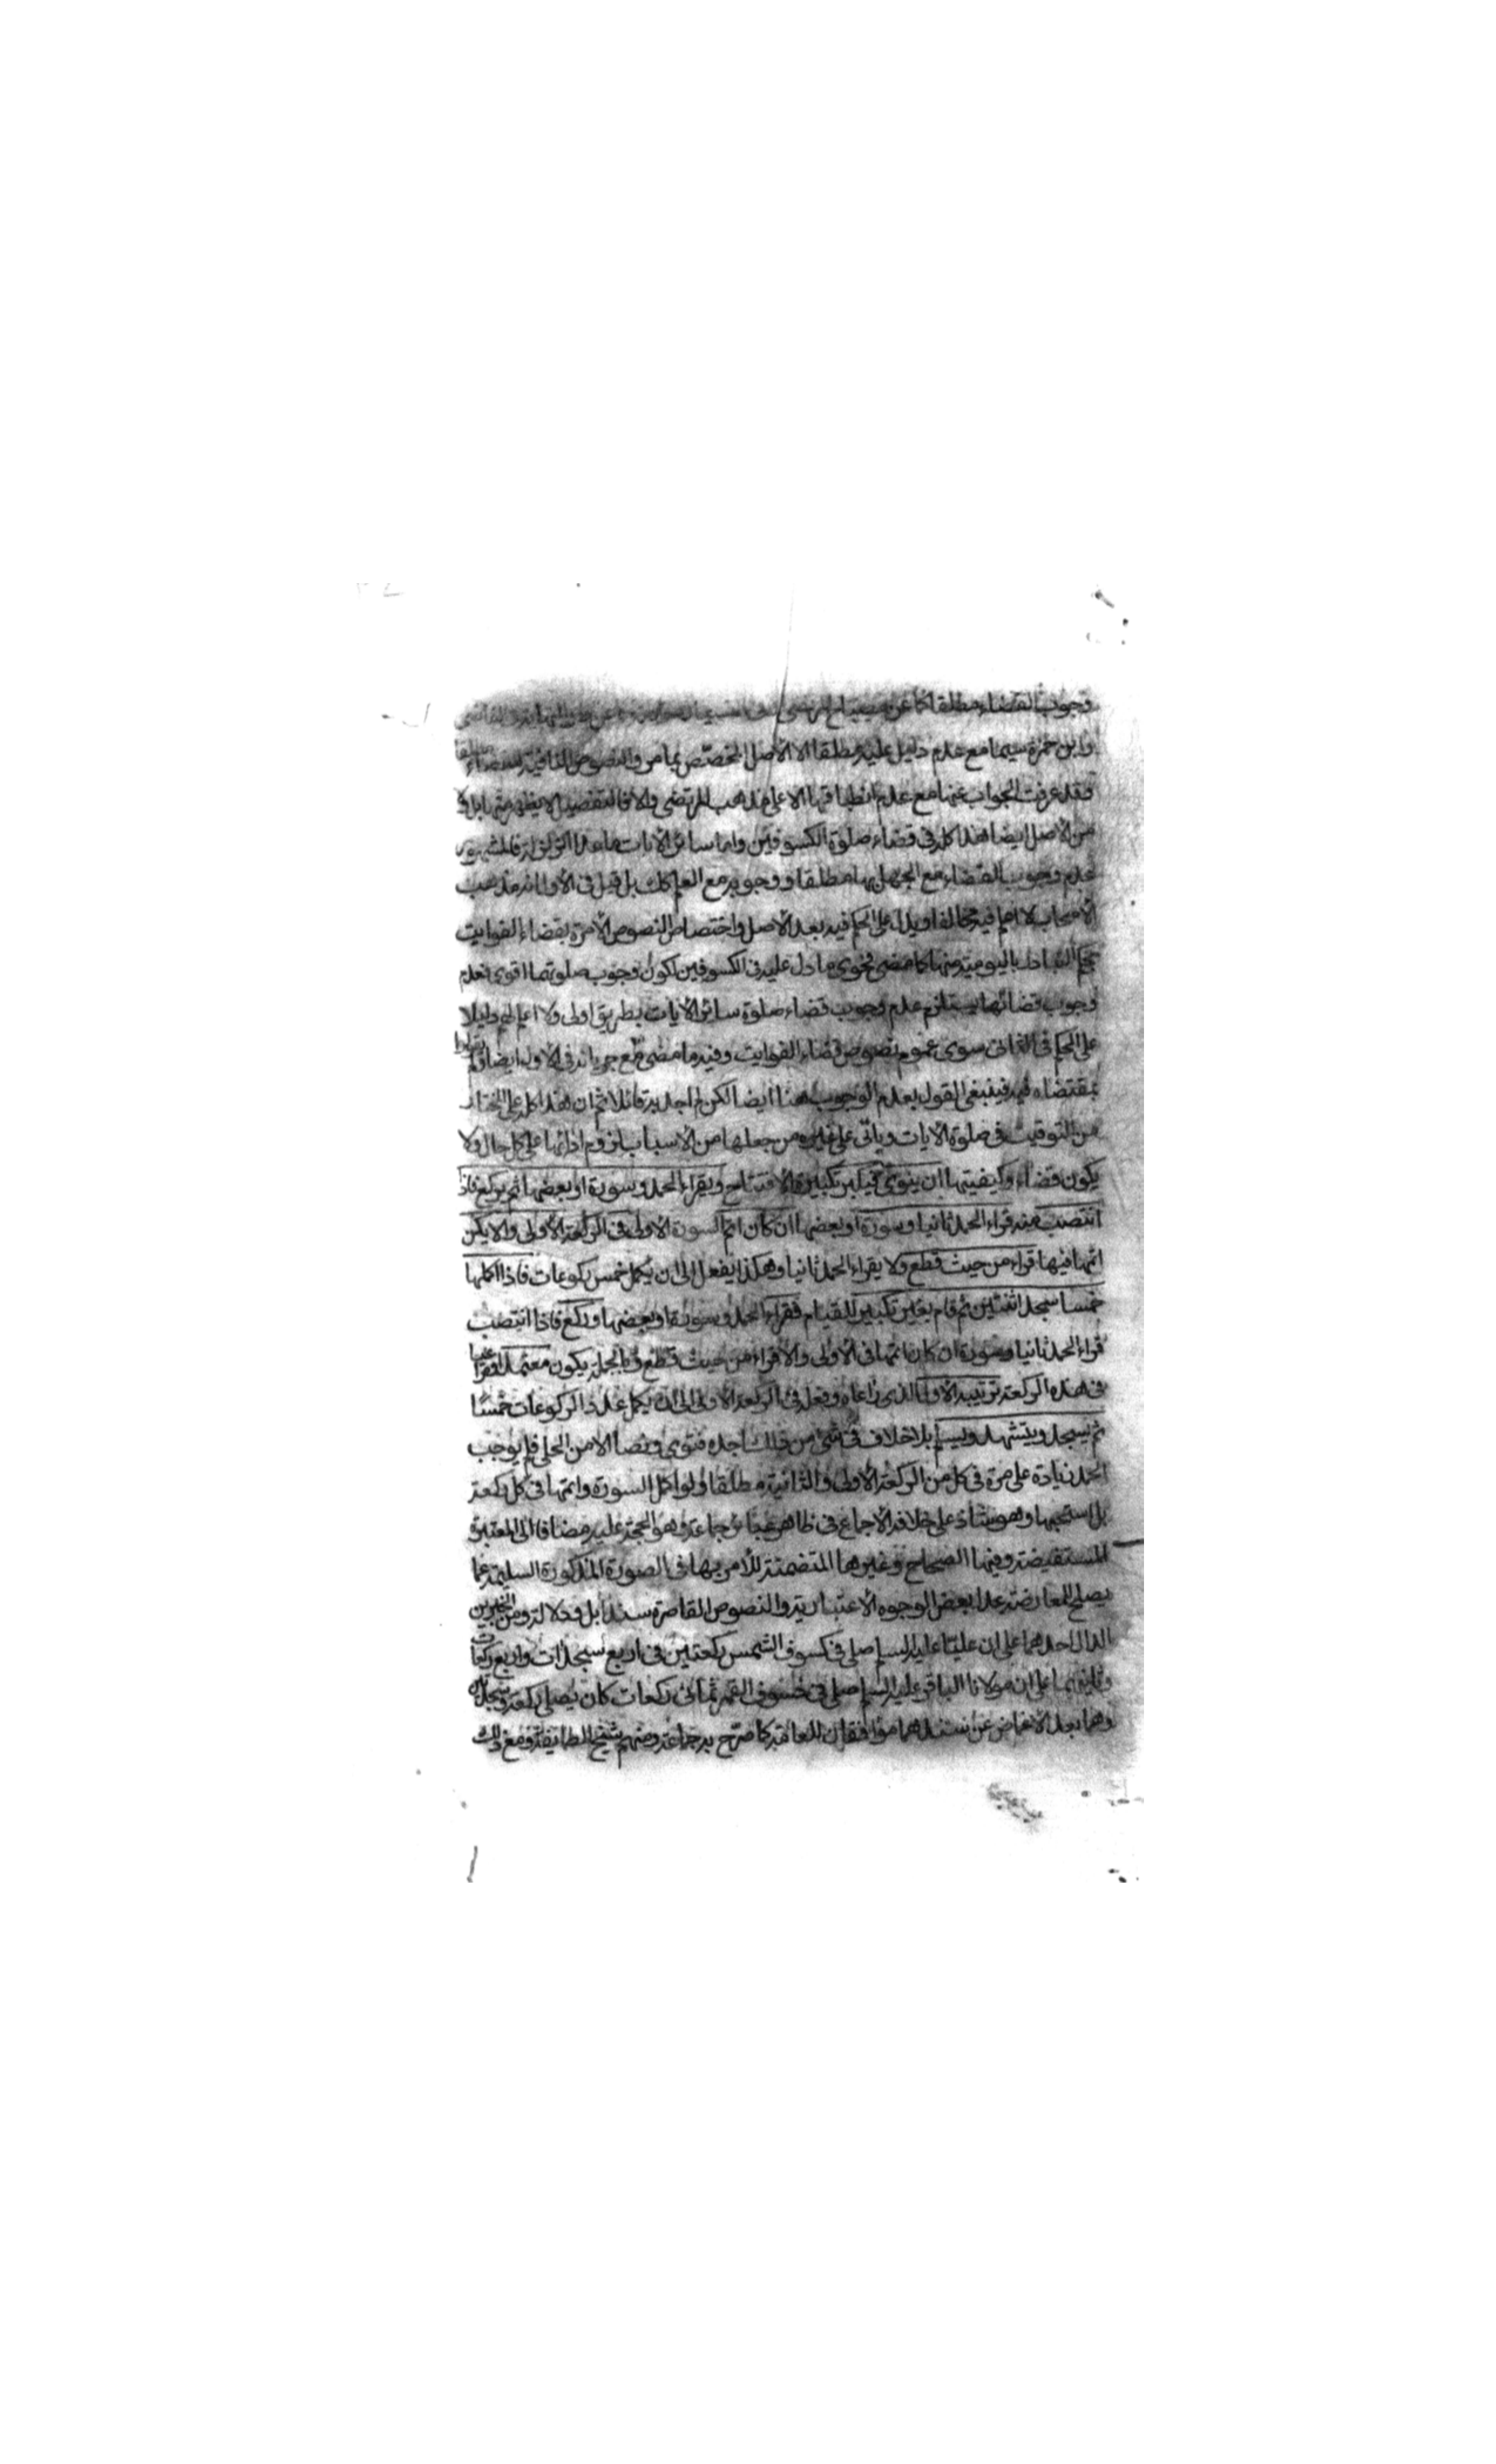 وجوب القضاء مطلقا كما عن مصباح المرتضى
وابن حمزة سيما مع عدم دليل عليه مطلقا الا الأصل المخصّص بما مر والنصوص النافية للقضاء مطلقا
فقد عرفت الجواب عنها مع عدم انطباقها الا على مذهب المرتضى والا فالتفصيل لا يظهر منها بل ولا
من الأصل ايضا هذا كله فى قضاء صلوة الكسوفين واما سائر الآيات ماعدا الزلزلة فالمشهور
عدم وجوب القضاء مع الجهل بها مطلقا ووجوبه مع العلم كك بل قيل فى الأول انه مذهب
الأصحاب لا اعلم فيه مخالفا ويدل على الحكم فيه بعد الأصل واختصاص النصوص الآمرة بقضاء الفوايت
بحكم التبادر باليومية منها كما مضى فحوى ما دل عليه فى الكسوفين لكون وجوب صلوتهما اقوى فعدم
وجوب قضائها يستلزم عدم وجوب قضاء صلوة سائر الآيات بطريق اولى ولا اعلم لهم دليلا
على الحكم فى الثانى سوى عموم نصوص قضاء الفوايت وفيه ما مضى مع جريانه فى الاول ايضا ولم يقولوا
بمقتضاه فيه فينبغى القول بعدم الوجوب هنا ايضا لكن لم اجد به قائلا ثم ان هذا كله على المختار
من التوقيت فى صلوة الآيات ويأتى على غيره من جعلها من الأسباب لزوم ادائها على كل حال ولا
يكون قضاء وكيفيتها ان ينوى فيكبر تكبيرة الافتتاح ويقراء الحمد وسورة او بعضها ثم يركع فاذا
انتصب منه قراء الحمد ثانيا وسورة او بعضها ان كان اتم السورة الاولى فى الركعة الأولى والا يكن
اتمها فيها قراء من حيث قطع ولا يقراء الحمد ثانيا وهكذا يفعل الى ان يكمل خمس ركوعات فاذا اكملها
خمسا سجد اثنتين ثم قام بغير تكبير للقيام فقراء الحمد وسورة او بعضها وركع فاذا انتصب
قراء الحمد ثانيا وسورة ان كان اتمها فى الأولى والا قراء من حيث قطع وبالجملة يكون معتمدا
فى هذه الركعة ترتيبه الأول الذى راعاه وفعله فى الركعة الاولى الى ان يكمل عدد الركوعات خمسًا
ثم يسجد ويتشهد ويسلم بلا خلاف فى شئ من ذلك اجده فتوى ونصا الا من الحلى فلم يوجب
الحمد زيادة على مرة فى كل من الركعة الأولى والثانية مطلقا ولو اكمل السورة واتمها فى كل ركعة
بل استحبها وهو شاذ على خلافه الاجماع فى ظاهر عبائر جماعة وهو الحجة عليه مضافا الى المعتبرة
المستفيضة وفيها الصحاح وغيرها المتضمنة للأمر بها فى الصورة المذكورة السليمة عما
يصلح للمعارضة عدا بعض الوجوه الاعتبارية والنصوص القاصرة سندا بل ودلالة ومن الخبرين
الدال احدهما على ان عليّا عليه السلم صلى فى كسوف الشمس ركعتين فى اربع سجدات واربع ركعات
وثانيهما على ان مولانا الباقر عليه السلم صلى فى خسوف القمر ثمانى ركعات كان يصلى ركعة وسجدتين
وهما بعد الاغماض عن سندهما موافقان للعامة كما صرّح به جماعة ومنهم شيخ الطايفة ومع ذلك